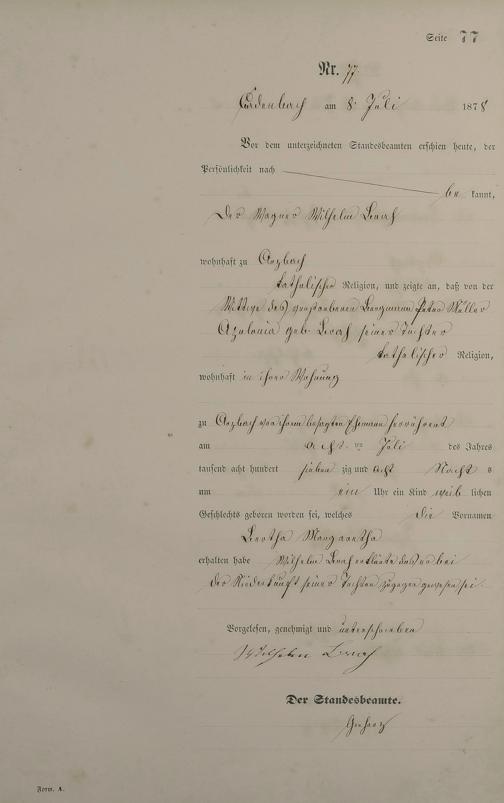 Seite 77
Nr. 77
Cadenbach am 8. Juli 1878
Vor dem unterzeichneten Standesbeamten erschien heute, der
Persönlichkeit nach
be kannt,
Der Wagner Wilhelm
wohnhaft zu Arzbach
katholischer Religion, und zeigte an, daß von der
Wittwe des verstorbenen Bergmann Peter Müller
geb. seiner Tochter
katholischer Religion,
wohnhaft in ihrer Wohnung
zu Arzbach von ihrem besagten Ehemann
am acht ten Juli des Jahres
tausend acht hundert sieben zig und acht Nacht s
um ein Uhr ein Kind weib lichen
Geschlechts geboren worden sei, welches die Vornamen
Bertha Margaretha
erhalten habe Wilhelm erklärte das er bei
der Niederkunft seiner Tochter zugegen gewesen sei.
Vorgelesen, genehmigt und unterschrieben
Wilhelm
Der Standesbeamte.
Form. A.